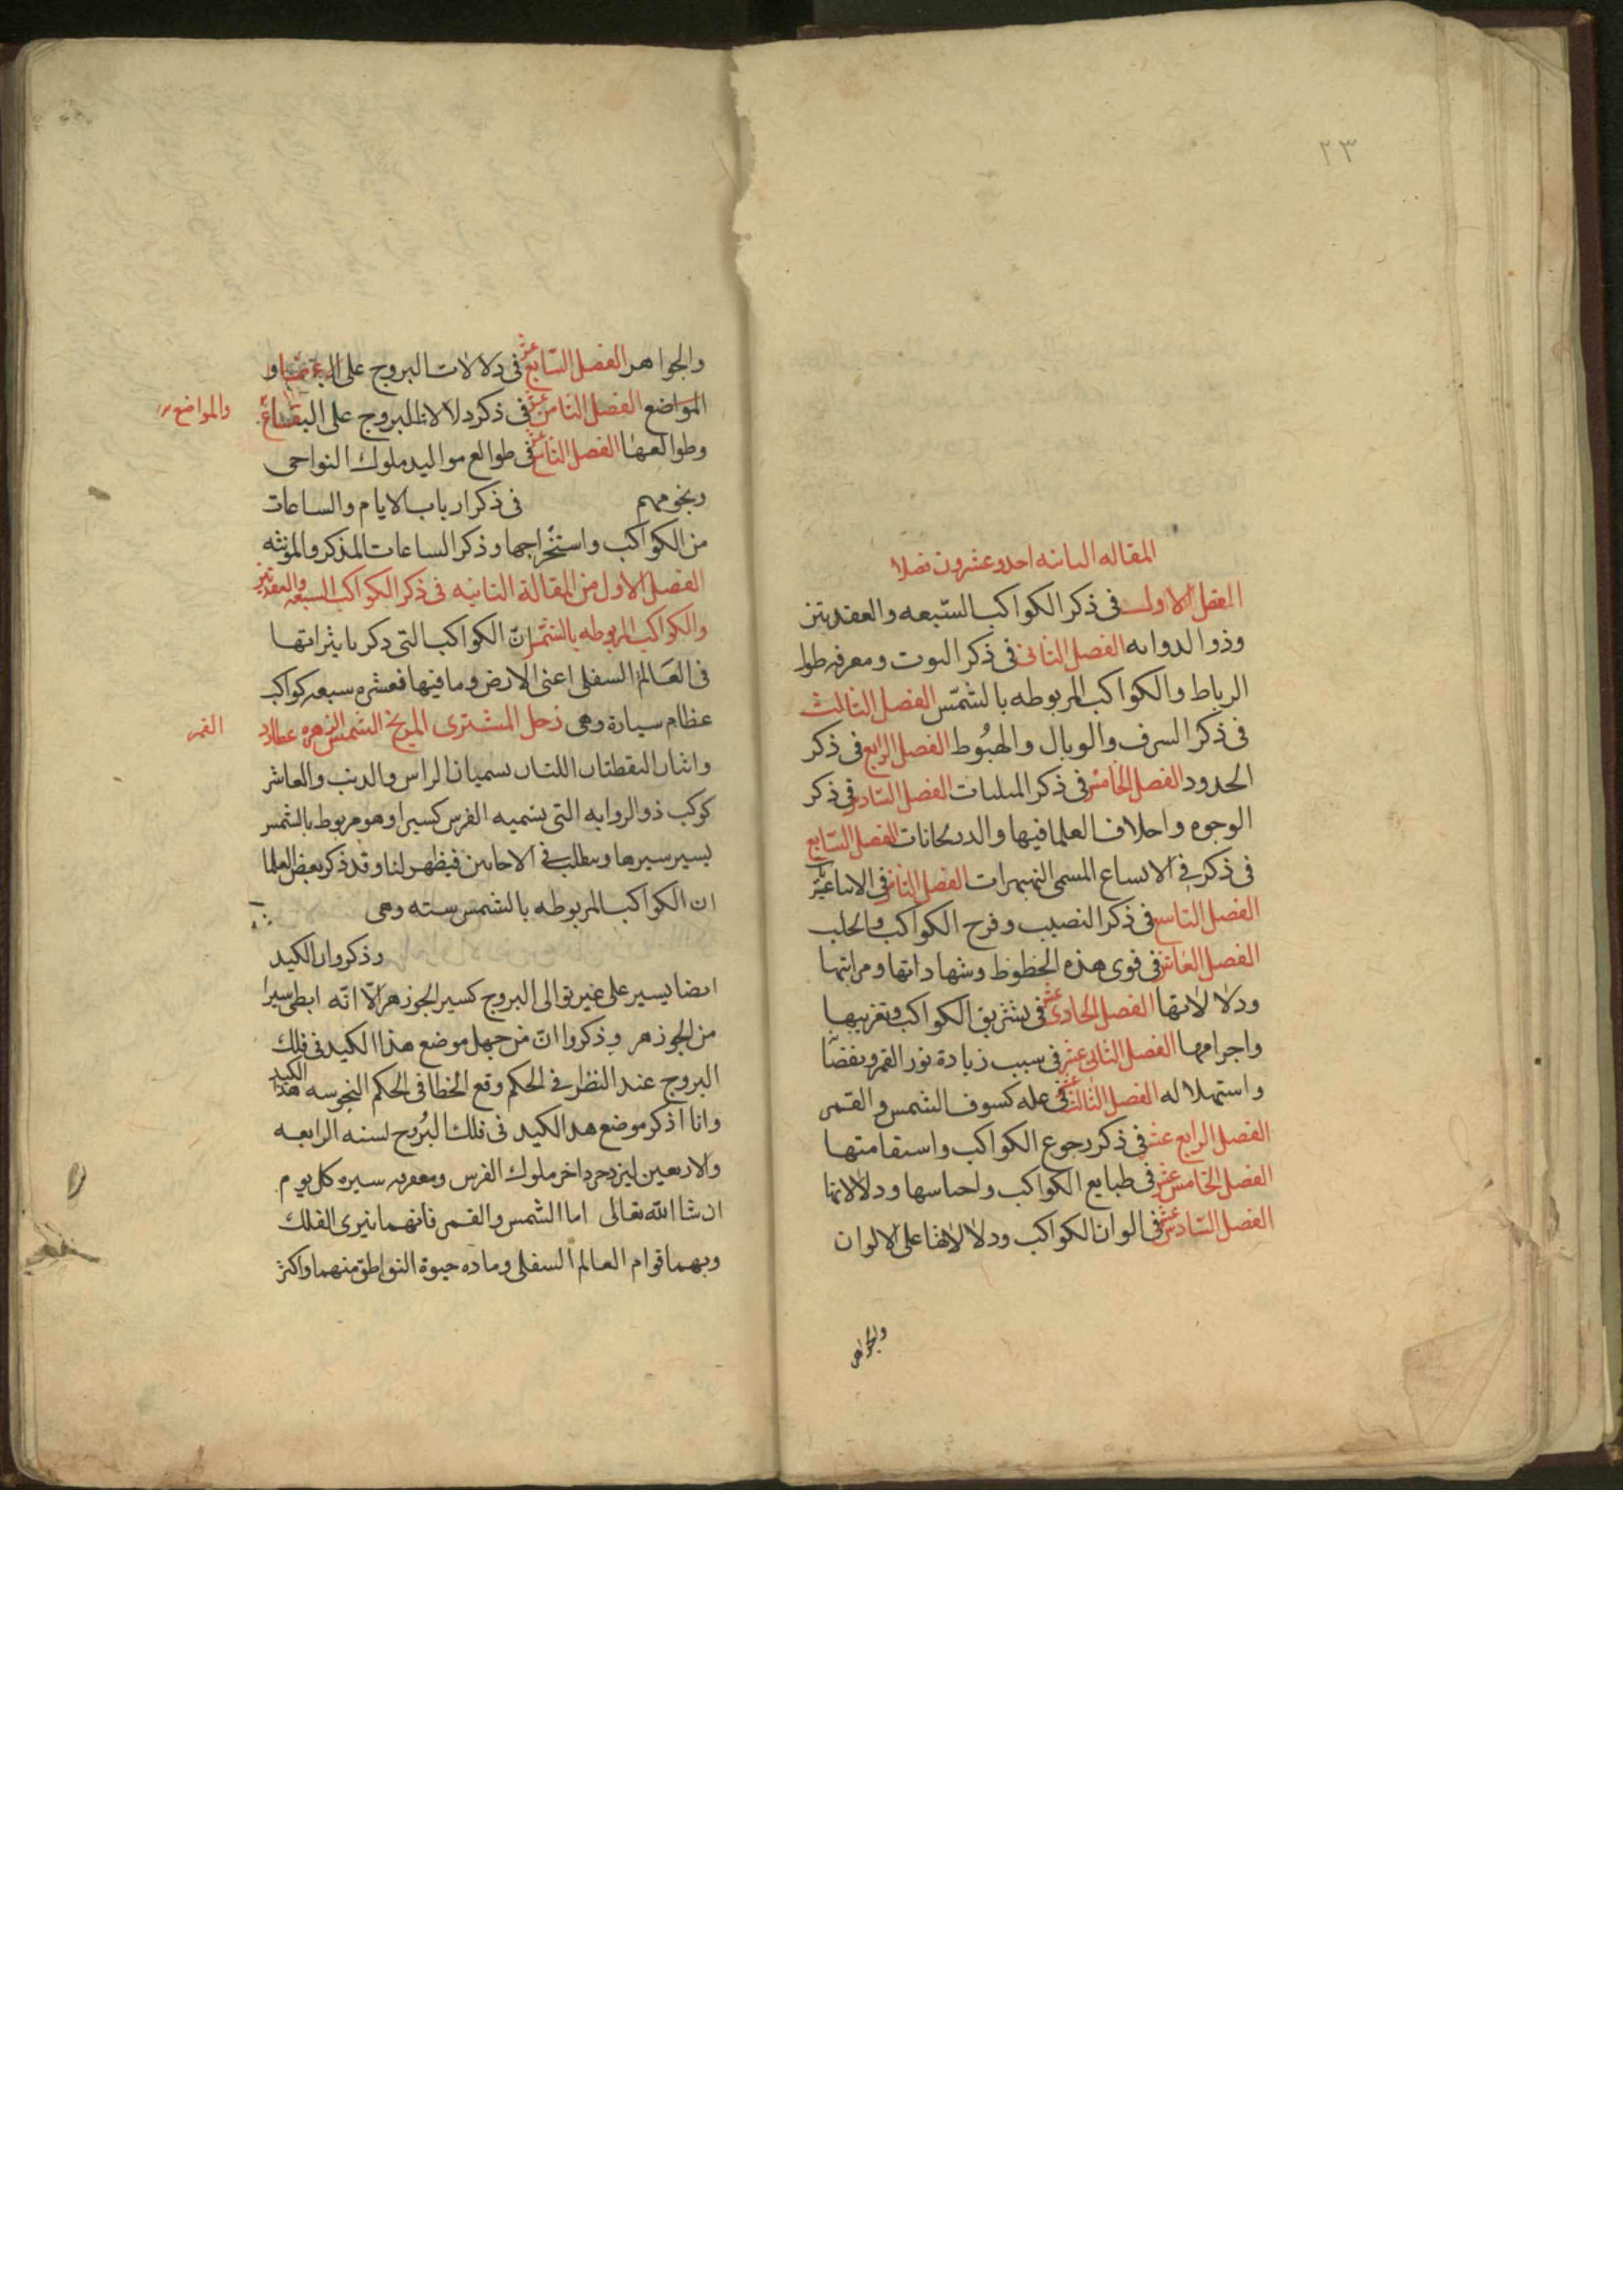 ٢٣
المقاله الثانيه احد وعشرون فصلا
الفصل الاول فى ذكر الكواكب السّبعه والعقدتين
وذو الدوابه الفصل الثانى فى ذكر البيوت ومعرفه
الرباط والكواكب المربوطه بالشمس الفصل الثالث
فى ذكر الشرف والوبال والهبُوط الفصل الرابع فى ذكر
الحدود الفصل الخامس فى ذكر المثلثات الفصل السّادس فى ذكر
الوجوه واختلاف العلما فيها والدريجانات الفصل السّابع
فى ذكر فى الاتساع المسمى النهبهرات الفصل الثامن فى الاثناعشريات
الفصل التاسع فى ذكر النصيب وفرح الكواكب والحلب
الفصل العاشر فى قوى هذه الحظوظ وشهاداتها ومراتبها
ودلالاتها الفصل الحادى عشر فى تشريق الكواكب وتغريبها
واجرامها الفصل الثانى عشر فى سبب زيادة نور القمر ونقصانه
واستهلاله الفصل الثالث عشر فى عله كسوف الشمس والقمر
الفصل الرابع عشر فى ذكر رجوع الكواكب واستقامتها
الفصل الخامس عشر فى طبايع الكواكب واجناسها ودلالاتها
الفصل السّادس عشر فى الوان الكواكب ودلالاتها على الالوان
والجواهر
والجواهر الفصل السّابع عشر فى دلالات البروج على
المواضع الفصل الثامن عشر فى ذكر دلالات البروج على البقاع
والمواضع
وطوالعها الفصل التاسع عشر فى طوالع مواليد ملوك النواحى
ونجومهم فى ذكر ارباب الايام والساعات
من الكواكب واستخراجها وذكر الساعات المذكر والمؤنثه
الفصل الاول من المقالة الثانيه فى ذكر الكواكب السبعه والعقدتين
والكواكب المربوطه بالشمس انّ الكواكب التى ذكر تاثيراتها
فى العَالم السفلى اعنى الارض وما فيها فعشره سبعه كواكب
عظام سيارة وهى زحل المشترى المريخ الشمس الزهره عطارد
القمر
واثنان النقطتان اللتان تسميان الراس والذنب والعاشر
كوكب ذو الروابه التى تسميه الفرس كسيرا وهو مربوط بالشمس
يسير سيرها ويطلب فى الاحايين فيظهر لنا وقد ذكر بعض العلما
ان الكواكب المربوطه بالشمس سته وهى
وذكروا ان الكيد
ايضا يسير على غير توالى البروج كسير الجوزهر الّا انّه ابطى سيرا
من الجوزهر وذكروا انّ من جهل موضع هذا الكيد فى فلك
البروج عند النظر فى الحكم وقع الخطا فى الحكم لنحوسه هذا الكيد
وانا اذكر موضع هذا الكيد فى فلك البُروج لسنه الرابعه
والاربعين ليزدجرد اخر ملوك الفرس ومعرفه سيره كل يوم
ان شا الله تعالى اما الشمس والقمر فانهما نيرى الفلك
وبهما قوام العالم السفلى وماده حيوة النواطق منهما واكثر